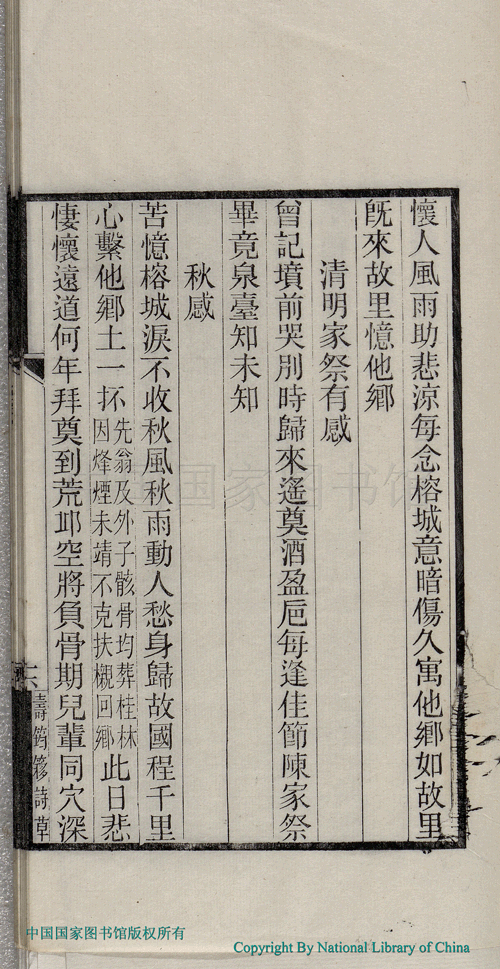 懷人風雨助悲涼每念榕城意暗傷久寓他鄉如故里
旣來故里憶他鄉
清明家祭有感
曾記墳前哭別時歸來遙奠酒盈巵每逢佳節陳家祭
畢竟泉臺知未知
秋感
苦憶榕城淚不收秋風秋雨動人愁身歸故國程千里
心繫他鄉土一抔先翁及外子骸骨均葬桂林因烽煙未靖不克扶櫬回鄉此日悲
悽懷遠道何年拜奠到荒邱空將負骨期兒輩同穴深
六
壽筠簃詩草
国家图书馆
中国国家图书馆版权所有
Copyright By National Library of China